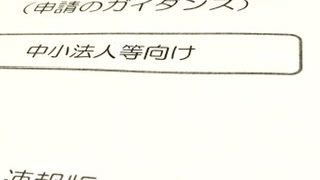 (申請のガイダンス)
中小法人等向け
速報版